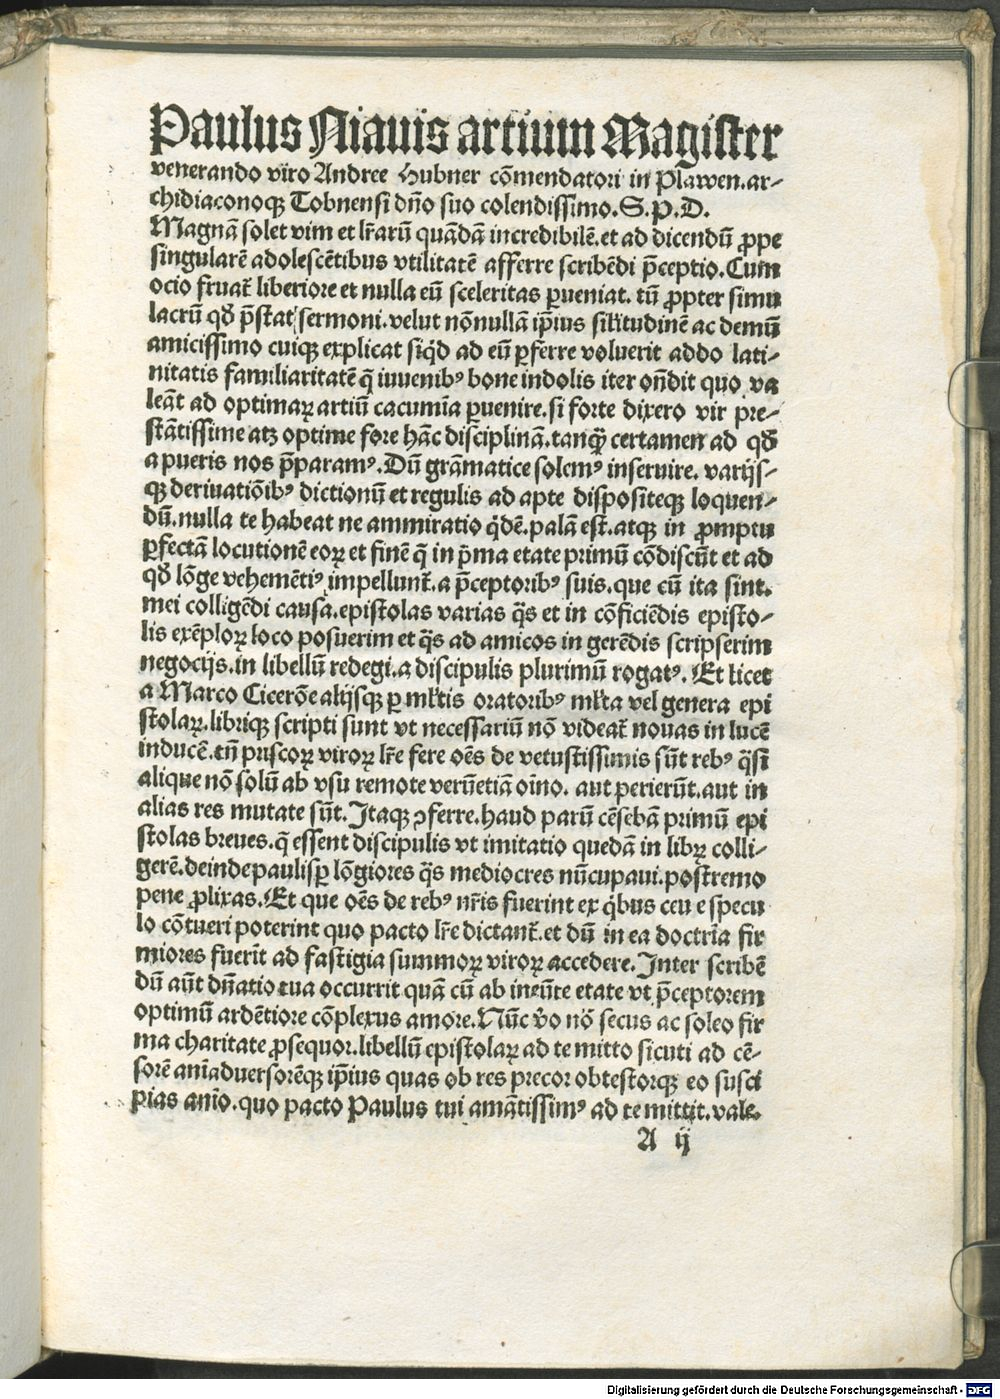 Paulus Niauis artium Magister
venerando viro Andree Hubner cōmendatori in Plawen.ar-
chidiaconoqꝫ Tobnensi dño suo colendissimo.S.P.D.
Magnā solet vim et lr̄arū quādā incredibilē.et ad dicendū ꝓpe
singularē adolescētibus vtilitatē afferre scribēdi p̄ceptio.Cum
ocio fruat̄ liberiore et nulla eū sceleritas ꝑueniat. tū ꝓpter simu
lacrū qđ p̄stat sermoni.velut nōnullā ip̄ius sil̄itudinē ac demū
amicissimo cuiqꝫ explicat siq̄d ad eū ꝑferre voluerit addo lati-
nitatis familiaritatē q̄ iuuenibꝰ bone indolis iter on̄dit quo va
leāt ad optimaꝝ artiū cacumīa ꝑuenire.si forte dixero vir pre-
stātissime atꝫ optime fore hāc disciplinā.tanq̄ꝫ certamen ad qđ
a pueris nos p̄paramꝰ.Dū grāmatice solemꝰ inseruire. varijs-
qꝫ deriuatiōibꝰ dictionū et regulis ad apte dispositeqꝫ loquen-
dū.nulla te habeat ne ammiratio q̄dē.palā est.atqꝫ in ꝓmptu
ꝑfectā locutionē eoꝝ et finē q̄ in p̄ma etate primū cōdiscūt et ad
qđ lōge vehemētiꝰ impellunt̄.a p̄ceptoribꝰ suis.que cū ita sint.
mei colligēdi causa.epistolas varias q̄s et in cōficiēdis episto-
lis exēploꝝ loco posuerim et q̄s ad amicos in gerēdis scripserim
negocijs.in libellū redegi.a discipulis plurimū rogatꝰ. Et licet
a Marco Cicerōe alijsqꝫ ꝑ ml̄tis oratoribꝰ ml̄ta vel genera epi
stolaꝝ.libriqꝫ scripti sunt vt necessariū nō videat̄ nouas in lucē
inducē.tn̄ priscoꝝ viroꝝ lr̄e fere oēs de vetustissimis sūt rebꝰ q̄si
alique nō solū ab vsu remote verūetiā oīno. aut perierūt.aut in
alias res mutate sūt. Itaqꝫ ꝯferre.haud parū cēsebā primū epi
stolas breues.q̄ essent discipulis vt imitatio quedā in libꝝ colli-
gerē.deinde paulisꝑ lōgiores q̄s mediocres nūcupaui.postremo
pene ꝓlixas.Et que oēs de rebꝰ nr̄is fuerint ex q̄bus ceu e specu
lo cōtueri poterint quo pacto lr̄e dictant̄.et dū in ea doctrīa fir
miores fuerīt ad fastigia summoꝝ viroꝝ accedere.Inter scribē
dū aūt dn̄atio tua occurrit quā cū ab ineūte etate vt p̄ceptorem
optimū ardētiore cōplexus amore.Nūc v̄o nō secus ac soleo fir
ma charitate ꝓsequor.libellū epistolaꝝ ad te mitto sicuti ad cē-
sorē anīaduersorēqꝫ ip̄ius quas ob res precor obtestorqꝫ eo susci
pias anīo.quo pacto Paulus tui amātissimꝰ ad te mittit.vale.
A ij
Digitalisierung gefördert durch die Deutsche Forschungsgemeinschaft - DFG